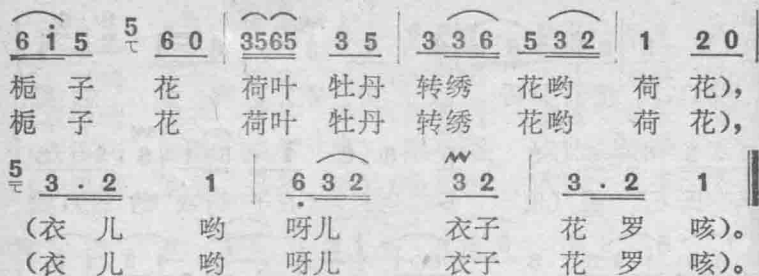 6 i 5 5 6 0 | 3565 3 5 | 3 3 6 5 3 2 | 1 2 0 |
栀 子 花 荷叶 牡丹 转绣 花哟 荷 花),
栀 子 花 荷叶 牡丹 转绣 花哟 荷 花),
5 3 . 2 1 | 6 3 2 3 2 | 3 . 2 1
(衣 儿 哟 呀儿 衣子 花 罗 咳)。
(衣 儿 哟 呀儿 衣子 花 罗 咳)。